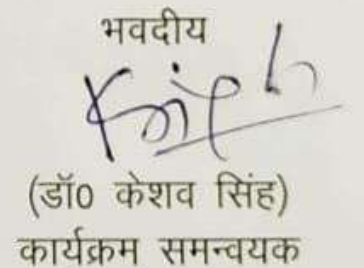 भवदीय
(डॉ0 केशव सिंह)
कार्यक्रम समन्वयक